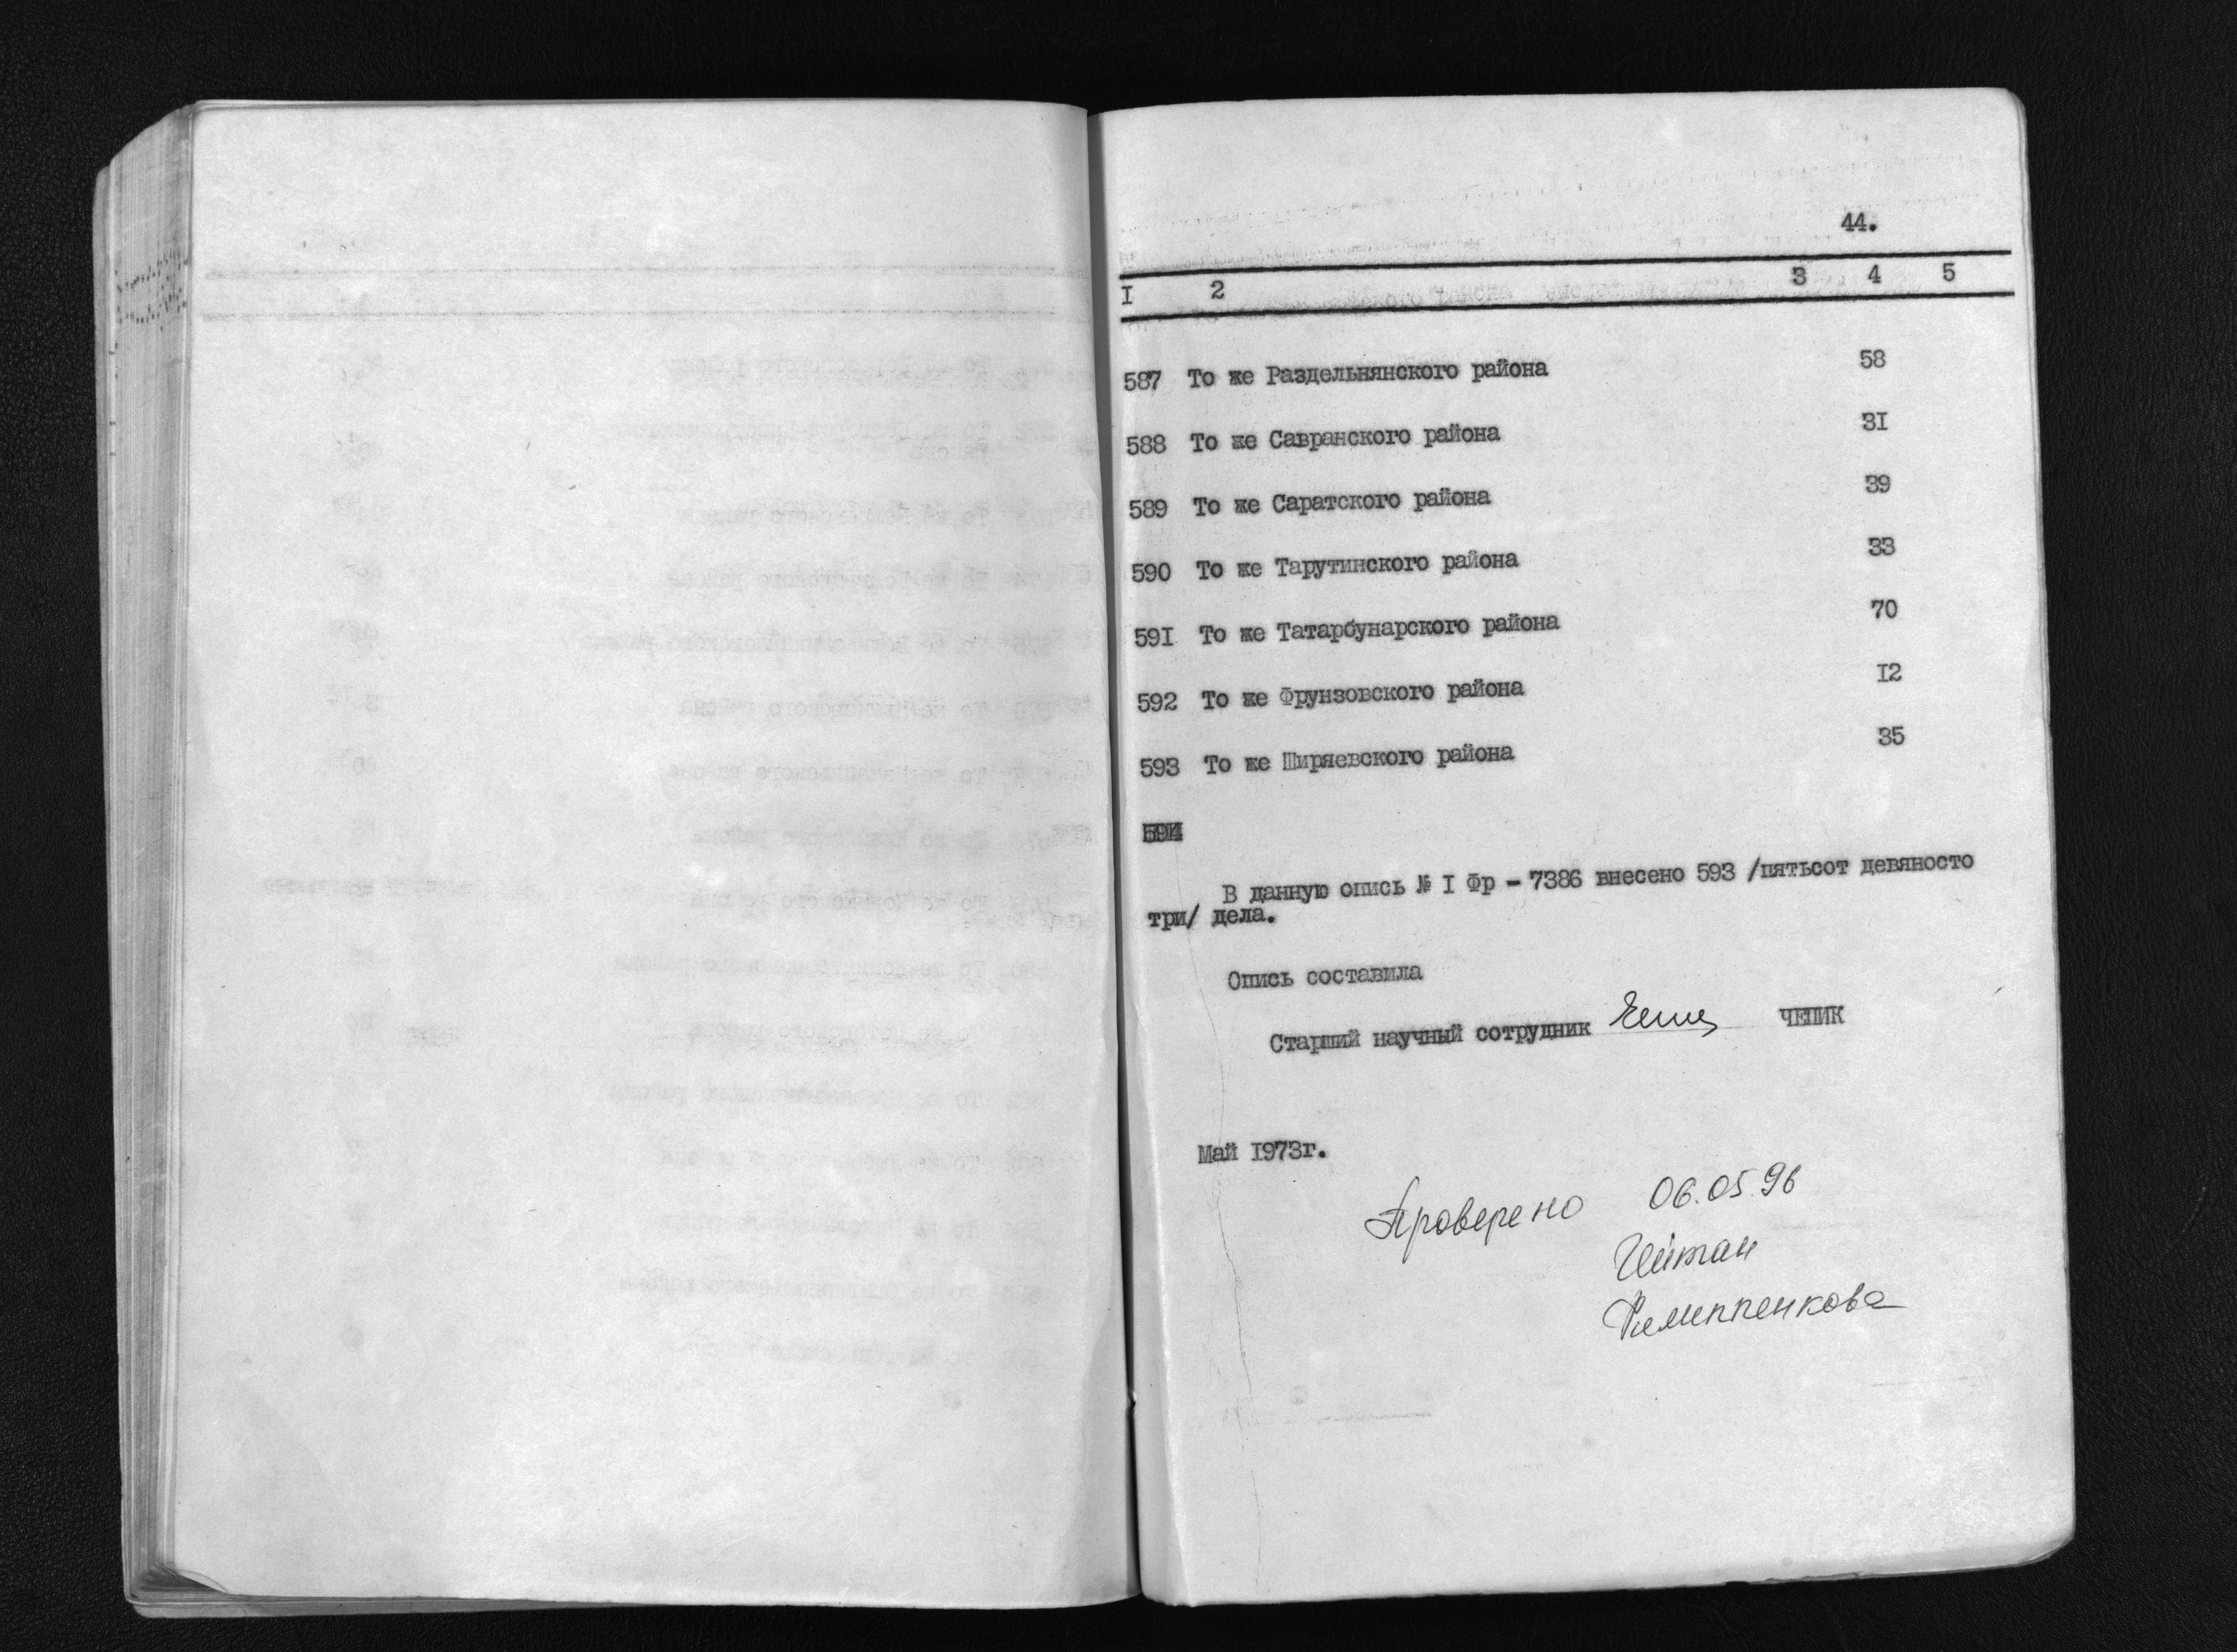 44.
I 2 3 4 5
587 То же Раздельнянского района 58
588 То же Савранского района 3I
589 То же Саратского района 39
590 То же Тарутинского района 33
59I То же Татарбунарского района 70
592 То же Фрунзовского района I2
593 То же Ширяевского района 35
В данную опись № I Фр - 7386 внесено 593 /пятьсот девяносто
три/ дела.
Опись составила
Старший научный сотрудник ЧЕПИК
Май I973г.
Проверено 06.05.96